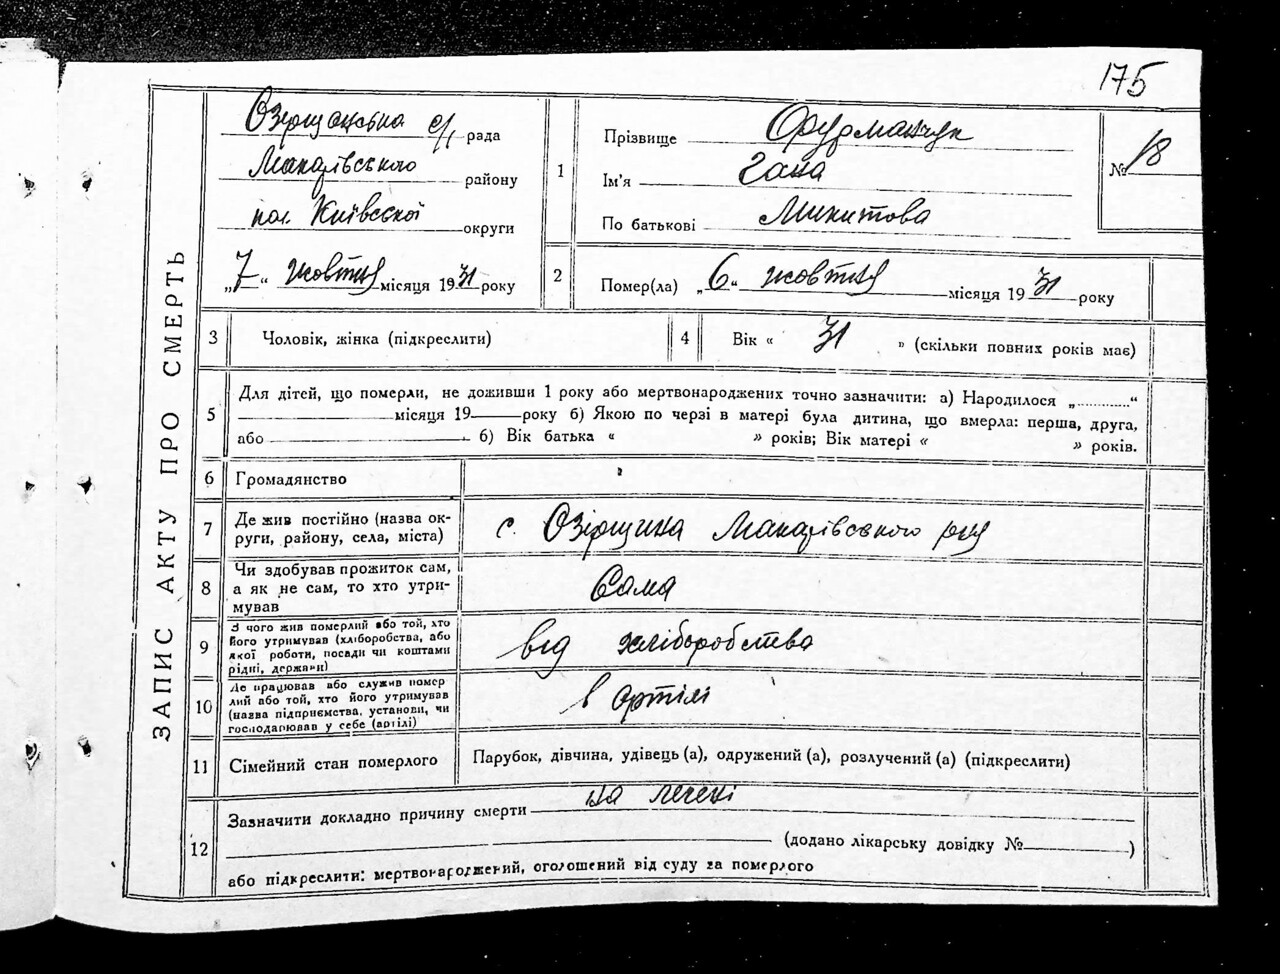 175
ЗАПИС АКТУ ПРО СМЕРТЬ
Озірщанська с/ рада
Макарівського району
Київської округи
„7“ жовтня місяця 1931 року
1
Прізвище Фурманчук
Ім'я Гана
По батькові Микитова
№ 18
2
Помер(ла) „6“ жовтня місяця 1931 року
3 Чоловік, жінка (підкреслити)
4 Вік « 31 » (скільки повних років має)
5
Для дітей, що померли, не доживши 1 року або мертвонароджених точно зазначити: а) Народилося „..........“
місяця 19 року б) Якою по черзі в матері була дитина, що вмерла: перша, друга,
або . б) Вік батька « » років; Вік матері « » років.
6 Громадянство
7
Де жив постійно (назва ок-
руги, району, села, міста)
с. Озірщина Макарівського р-ну
8
Чи здобував прожиток сам,
а як не сам, то хто утри-
мував
Сама
9
З чого жив померлий або той, хто
його утримував (хліборобства, або
якої роботи, посади чи коштами
рідні, держави)
від хліборобства
10
Де працював або служив помер
лий або той, хто його утримував
(назва підприємства, установи, чи
господарював у себе (артілі)
в артілі
11 Сімейний стан померлого
Парубок, дівчина, удівець (а), одружений (а), розлучений (а) (підкреслити)
12
Зазначити докладно причину смерти на легені
(додано лікарську довідку № )
або підкреслити: мертвонароджений, оголошений від суду за померлого